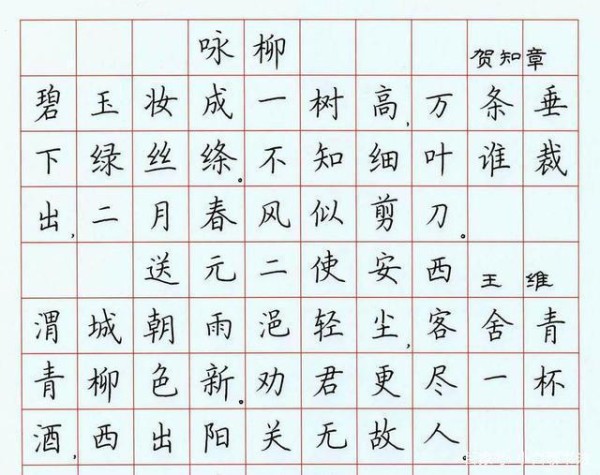 咏柳 贺知章
碧玉妆成一树高,万条垂
下绿丝绦。不知细叶谁裁
出,二月春风似剪刀。
送元二使安西 王维
渭城朝雨浥轻尘,客舍青
青柳色新。劝君更尽一杯
酒,西出阳关无故人。